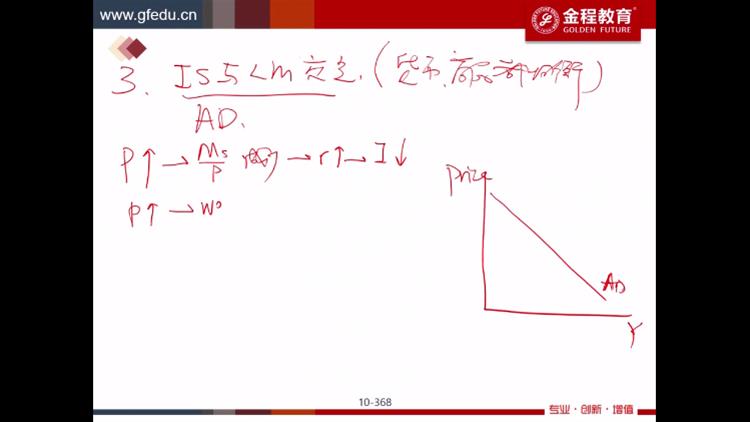 www.gfedu.cn
金程教育
GOLDEN FUTURE
3. IS与LM交点.(货币、商品市场均衡)
AD.
P↑→Ms/P →r↑→I↓
P↑→W
Price
AD
Y
10-368
专业·创新·增值